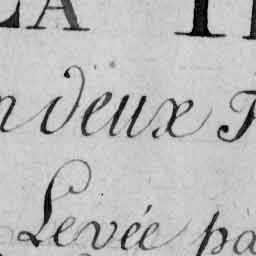 LA
n deux
Levée pa